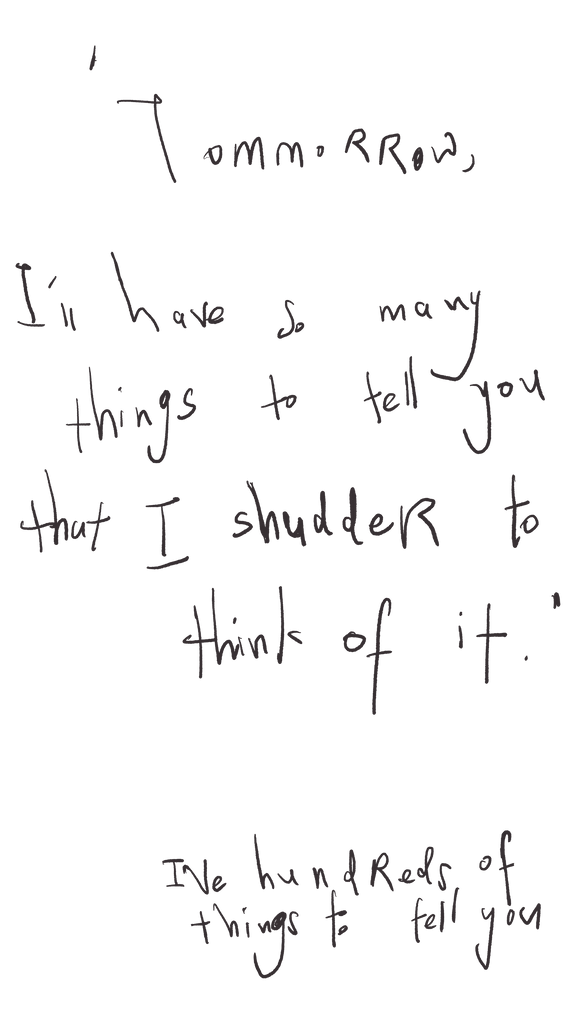 'Tommorrow,
I'll have so many
things to tell you
that I shudder to
think of it."
I've hundreds of
things to tell you